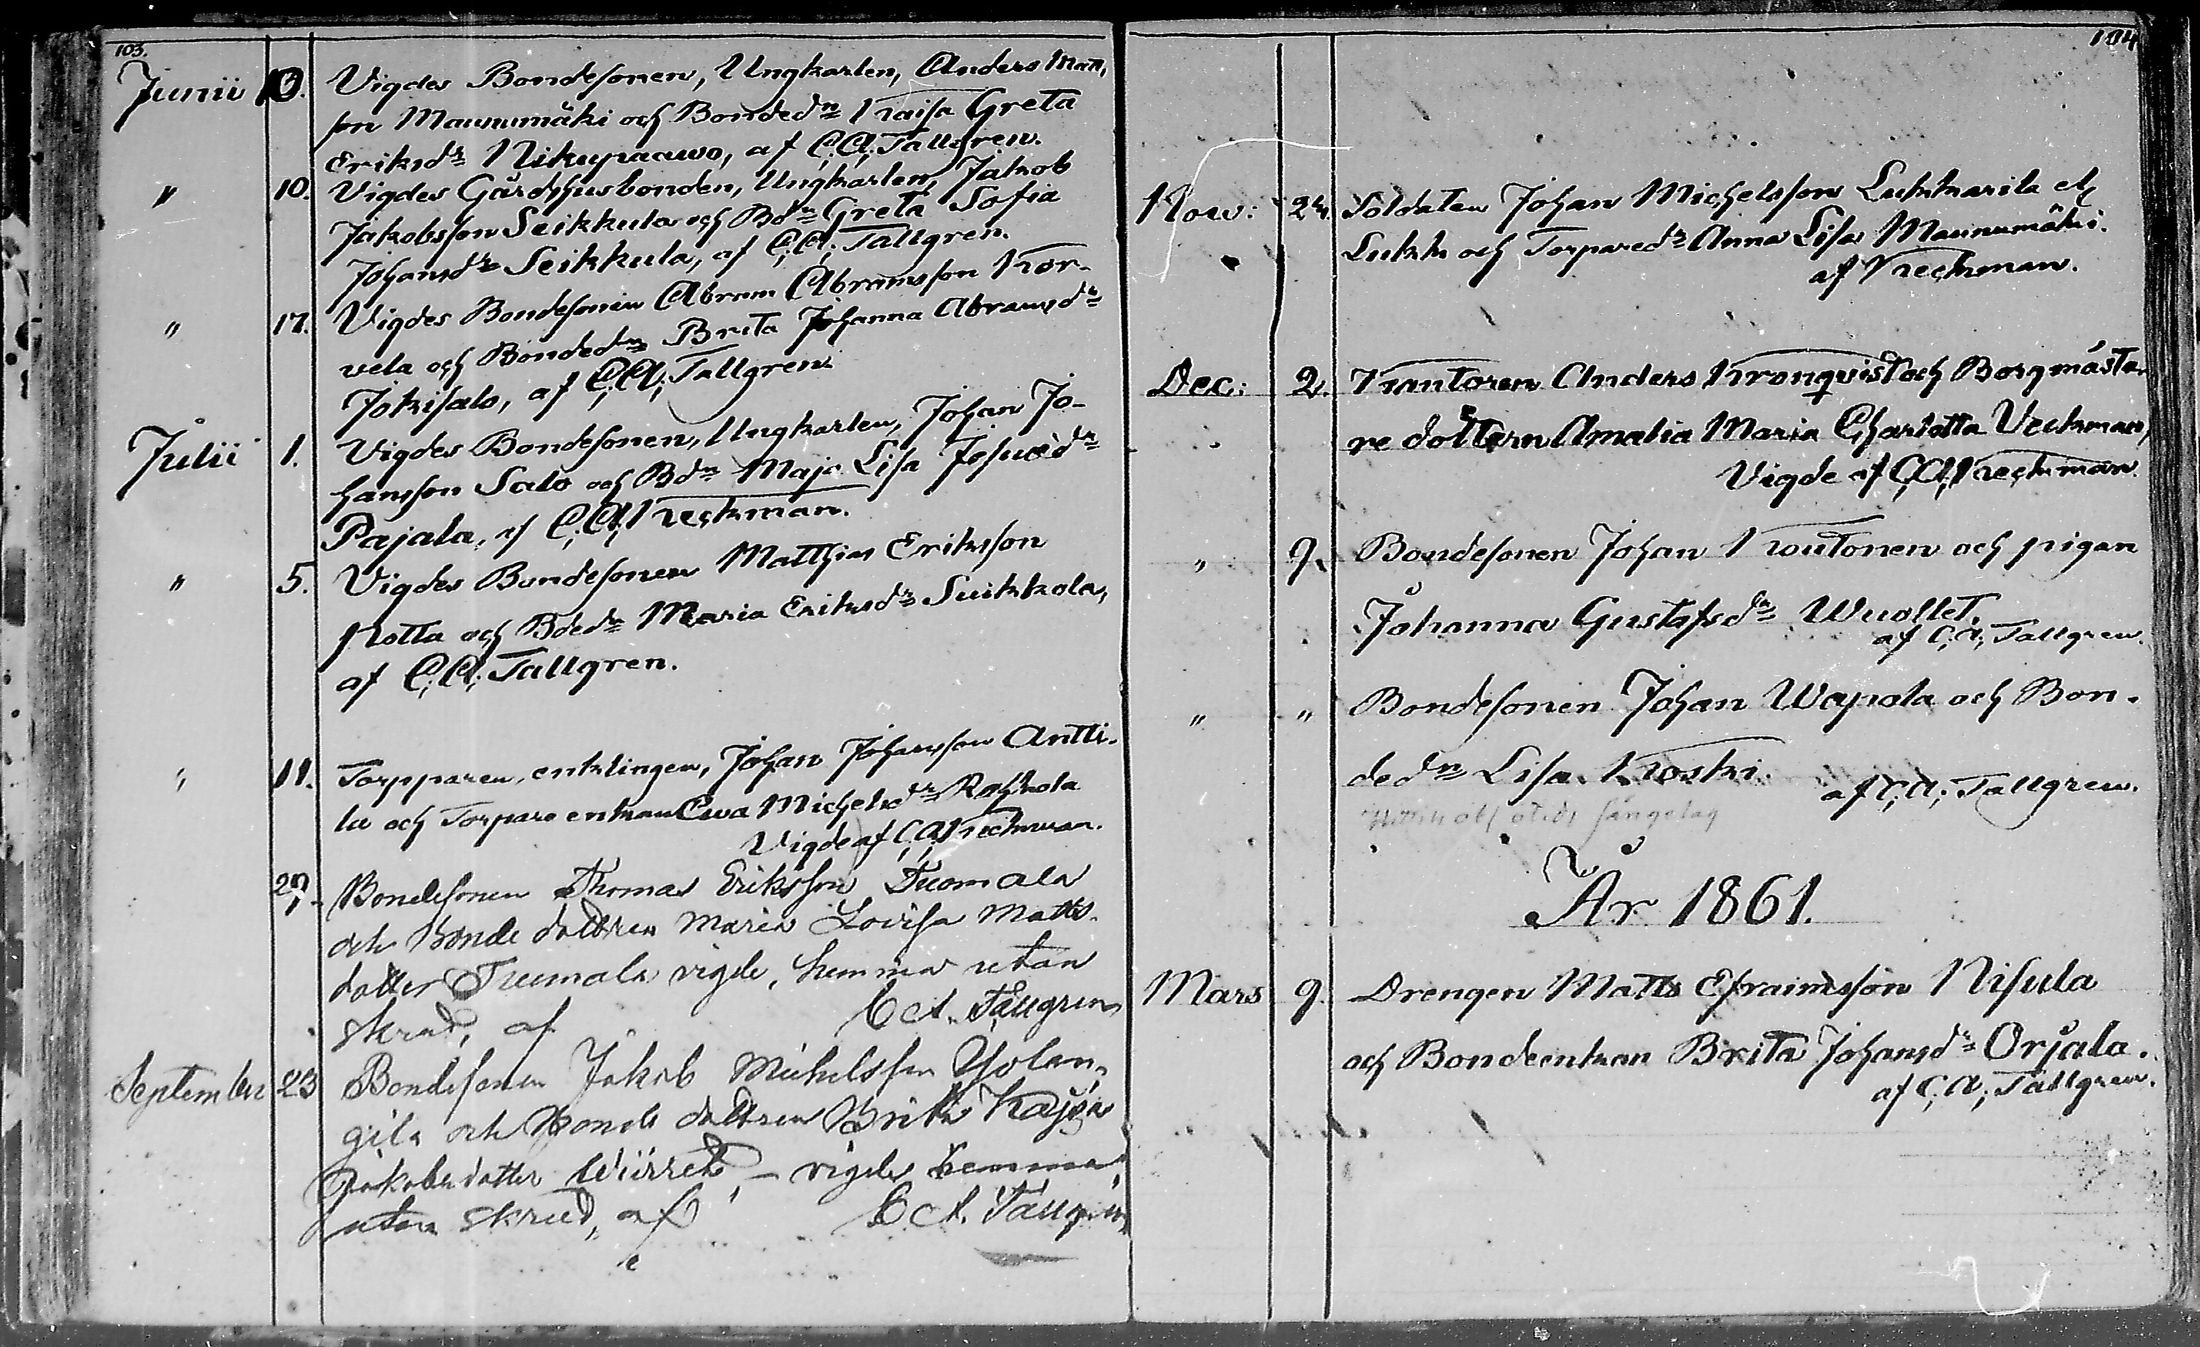 103.
Junii 10. Vigdes Bondesonen, Ungkarlen, Anders Matts
son Maunumäki och Bondedn Kaisa Greta
Eriksdr Nikupaawo, af C; A; Tallgren.
" 10. Vigdes Gårdshusbonden, Ungkarlen, Jakob
Jakobsson Seikkula och Bdn Greta Sofia
Johansdr Seikkula, af C; A; Tallgren.
" 17. Vigdes Bondesonen Abram Abramsson Kor-
vela och Bondedn Brita Johanna Abramsdr
Jokisalo, af C; A; Tallgren.
Julii 1. Vigdes Bondesonen, Ungkarlen, Johan Jo-
hansson Salo och Bdn Maja Lisa Josuædr
Pajala, af C; A; Kreckman.
" 5. Vigdes Bondesonen Matthias Eriksson
Notta och Bdedn Maria Eriksdr Suikkola,
af C; A; Tallgren.
" 11. Torpparen, enklingen, Johan Johansson Antti-
la och Torpare enkan Ewa Michelsdr Rohkola
Vigde af C; A; Kreckman.
29. Bondesonen Thomas Eriksson Tuomala
och Bonde dottren Maria Lovisa Matts-
dotter Tuomala vigde, hemma utan
skrud, af C A. Tallgren
September 23 Bondesonen Jakob Michelsson Yolan-
gila och Bonde dottren Brita Kajsa
Jakobsdotter Wiirret, - vigde hemma
utan skrud, af C A. Tallgren
104
Nov: 24. Soldaten Johan Michelsson Lukkarila el
Lukk och Torparedr Anna Lisa Maunumäki.
af Kreckman.
Dec: 2. Kantoren Anders Kronqvist och Borgmästa-
re dottern Amalia Maria Charlotta Veckman,
Vigde af C; A; Kreckman.
" 9. Bondesonen Johan Koutonen och pigan
Johanna Gustafsdr Wuollet.
af C; A; Tallgren.
" " Bondesonen Johan Wapola och Bon-
dedn Lisa Koski. af C; A; Tallgren.
År 1861.
Mars 9. Drengen Matts Efraimsson Nisula
och Bondeenkan Brita Johansdr Orjala.
af C; A; Tallgren.